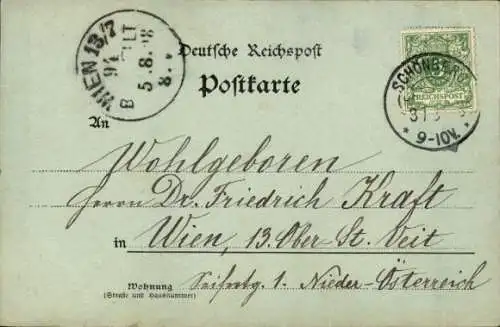 WIEN 13/7
91
B
5.8.98
8.
Deutsche Reichspost
Postkarte
SCHÖNBERG
REICHSPOST
* 9-10V. *
An
Wohlgeboren
Herrn Dr. Friedrich Kraft
in Wien, 13. Ober-St. Veit
Wohnung 1. Nieder-Österreich
(Straße und Hausnummer)